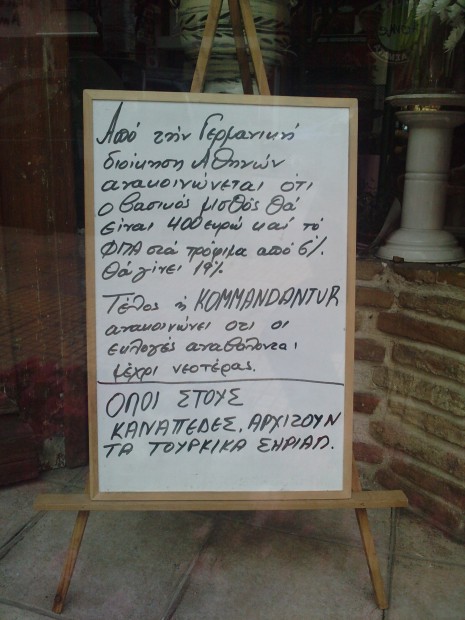 Από τήν Γερμανική
διοίκηση Αθηνών
ανακοινώνεται ότι
ο βασικός μισθός θά
είναι 400 ευρώ καί τό
ΦΠΑ στά τρόφιμα από 6%
θά γίνει 19%
Τέλος ή KOMMANDANTUR
ανακοινώνει οτι οι
ευλογές αναβάλονται
μέχρι νεοτέρας.
ΟΛΟΙ ΣΤΟΥΣ
ΚΑΝΑΠΕΔΕΣ, ΑΡΧΙΖΟΥΝ
ΤΑ ΤΟΥΡΚΙΚΑ ΣΗΡΙΑΛ.